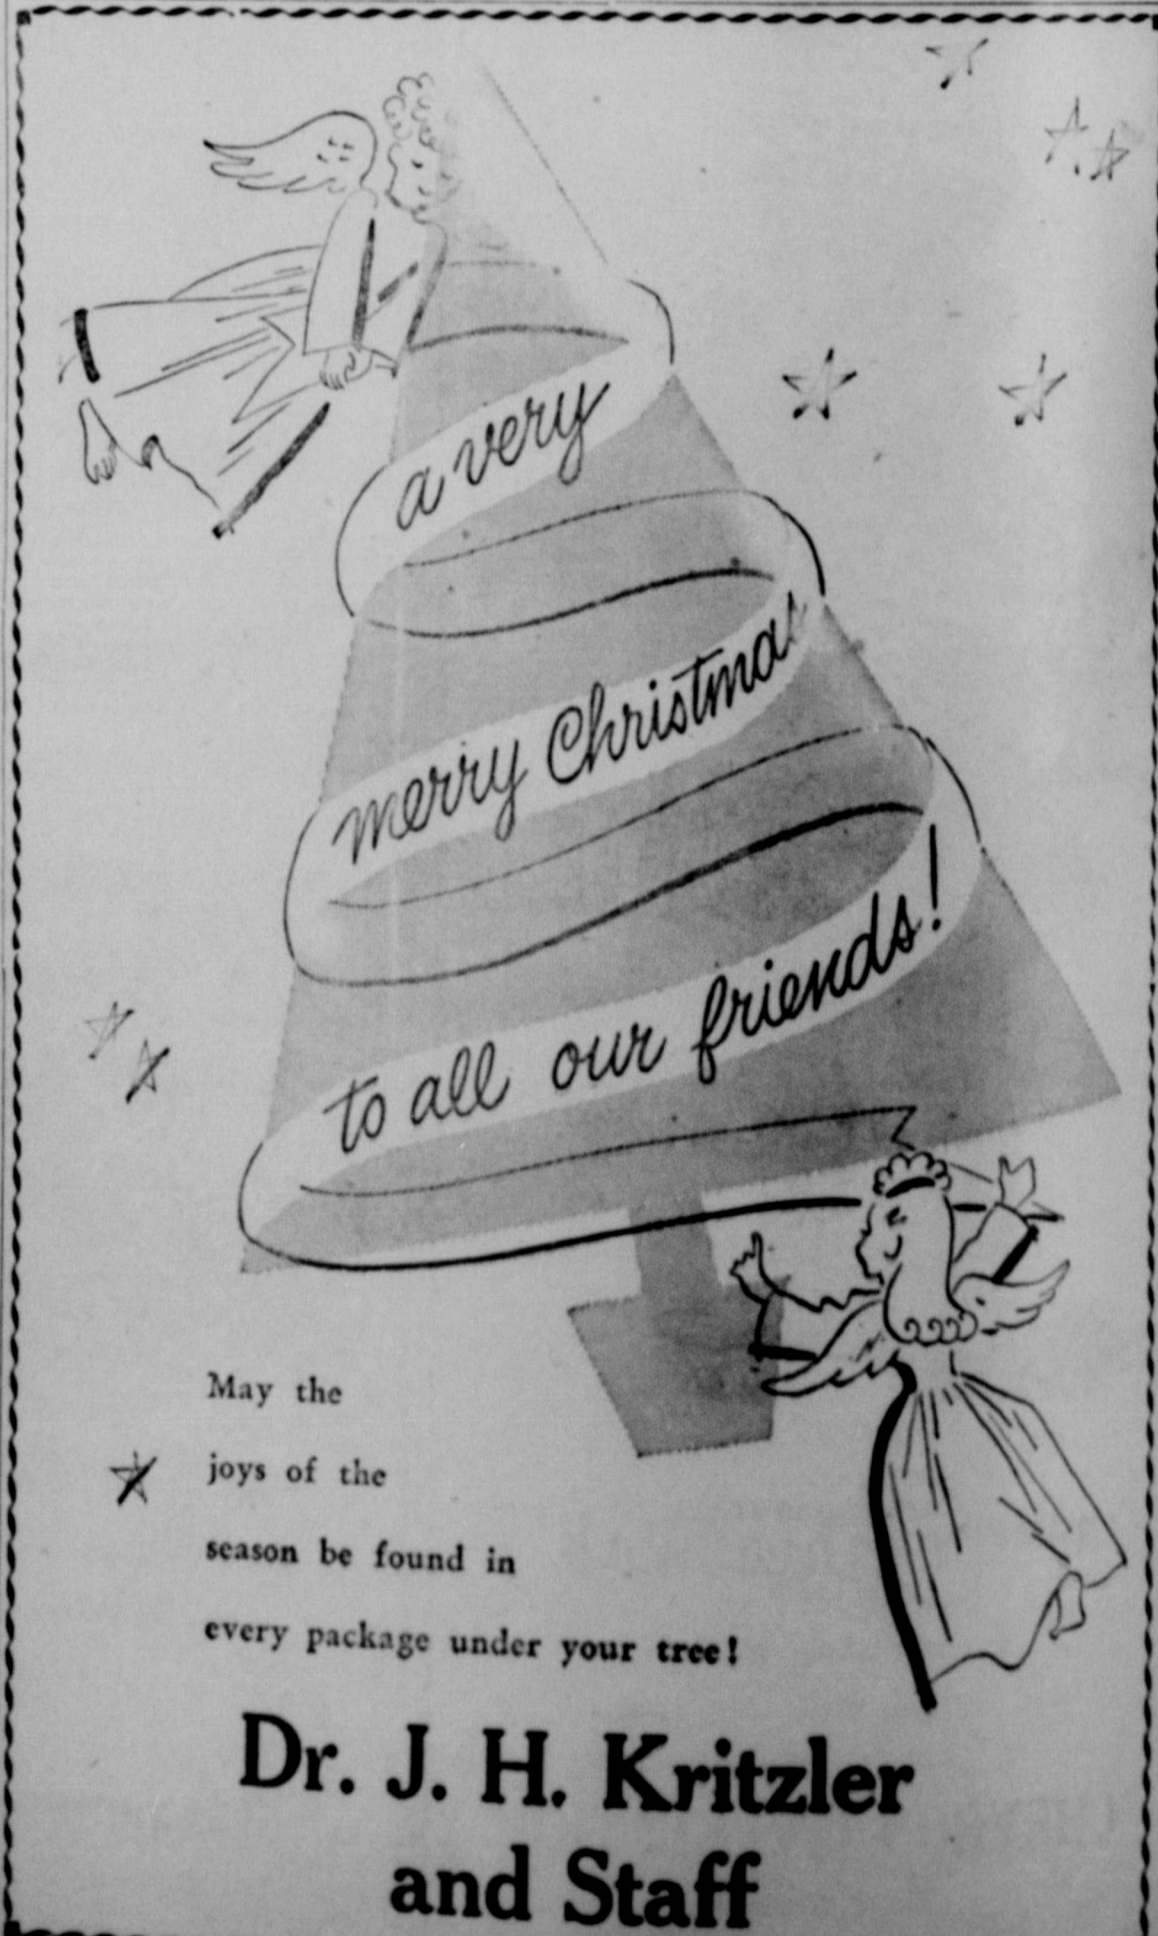 a very
merry Christmas
to all our friends!
May the
joys of the
season be found in
every package under your tree!
Dr. J. H. Kritzler
and Staff